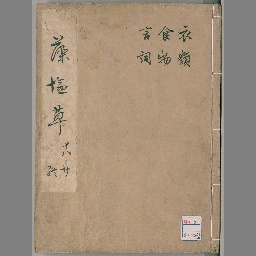 衣類
食物
言詞
藻塩草